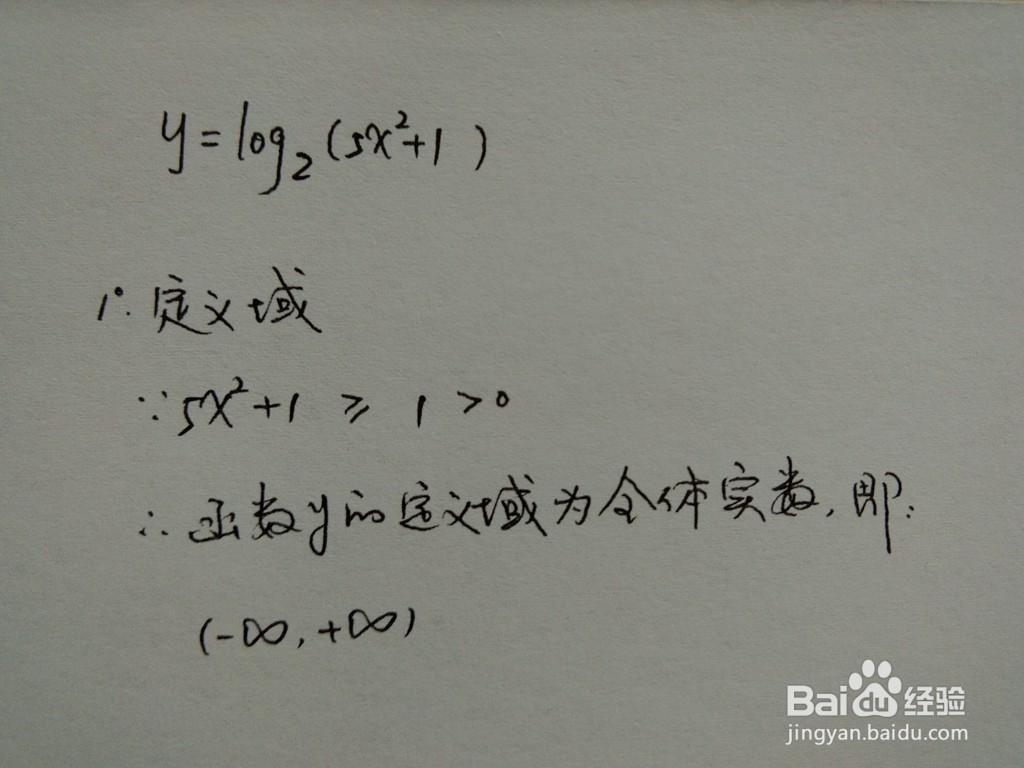 y=log₂(5x²+1)
1°.定义域
∵5x²+1 ≥ 1 >0
∴函数y的定义域为全体实数,即:
(-∞,+∞)
Bai du 经验
jingyan.baidu.com